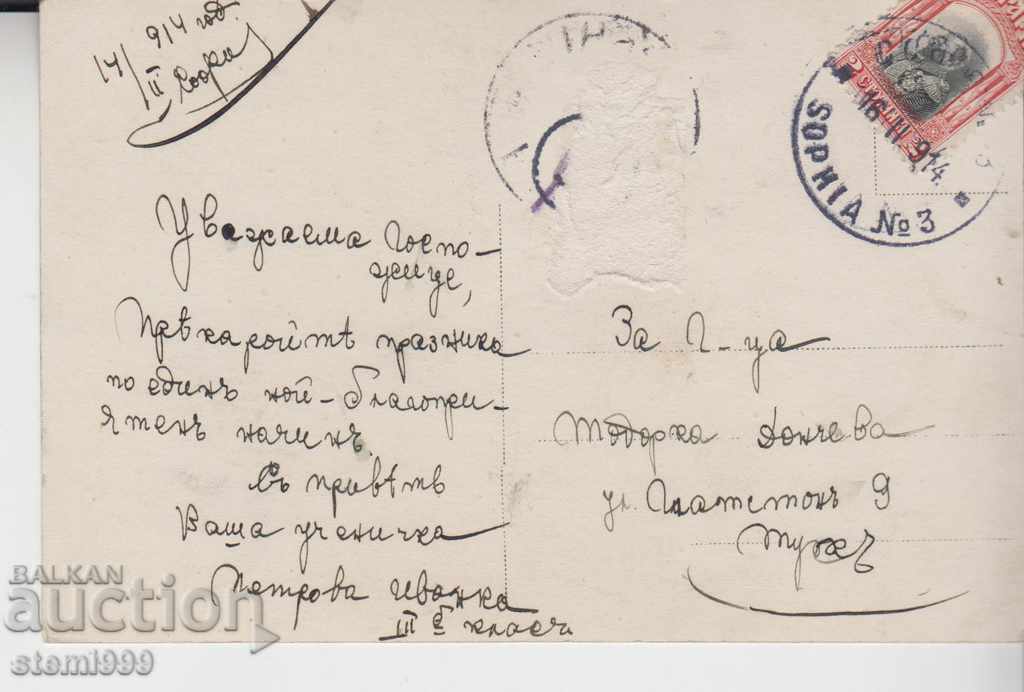 14/II 914 год
София
Уважаема Госпо-
жице,
Прѣкаройтѣ празника
по единъ най-благопри-
ятенъ начинъ.
Съ привѣтъ
Ваша ученичка
Петрова Иванка
III б класъ.
SOPHIA No 3
16 II 914.
За Г-ца
Тодорка Дончева
ул. Гладстонъ 9
Тукъ
BALKAN
auction
stemi999